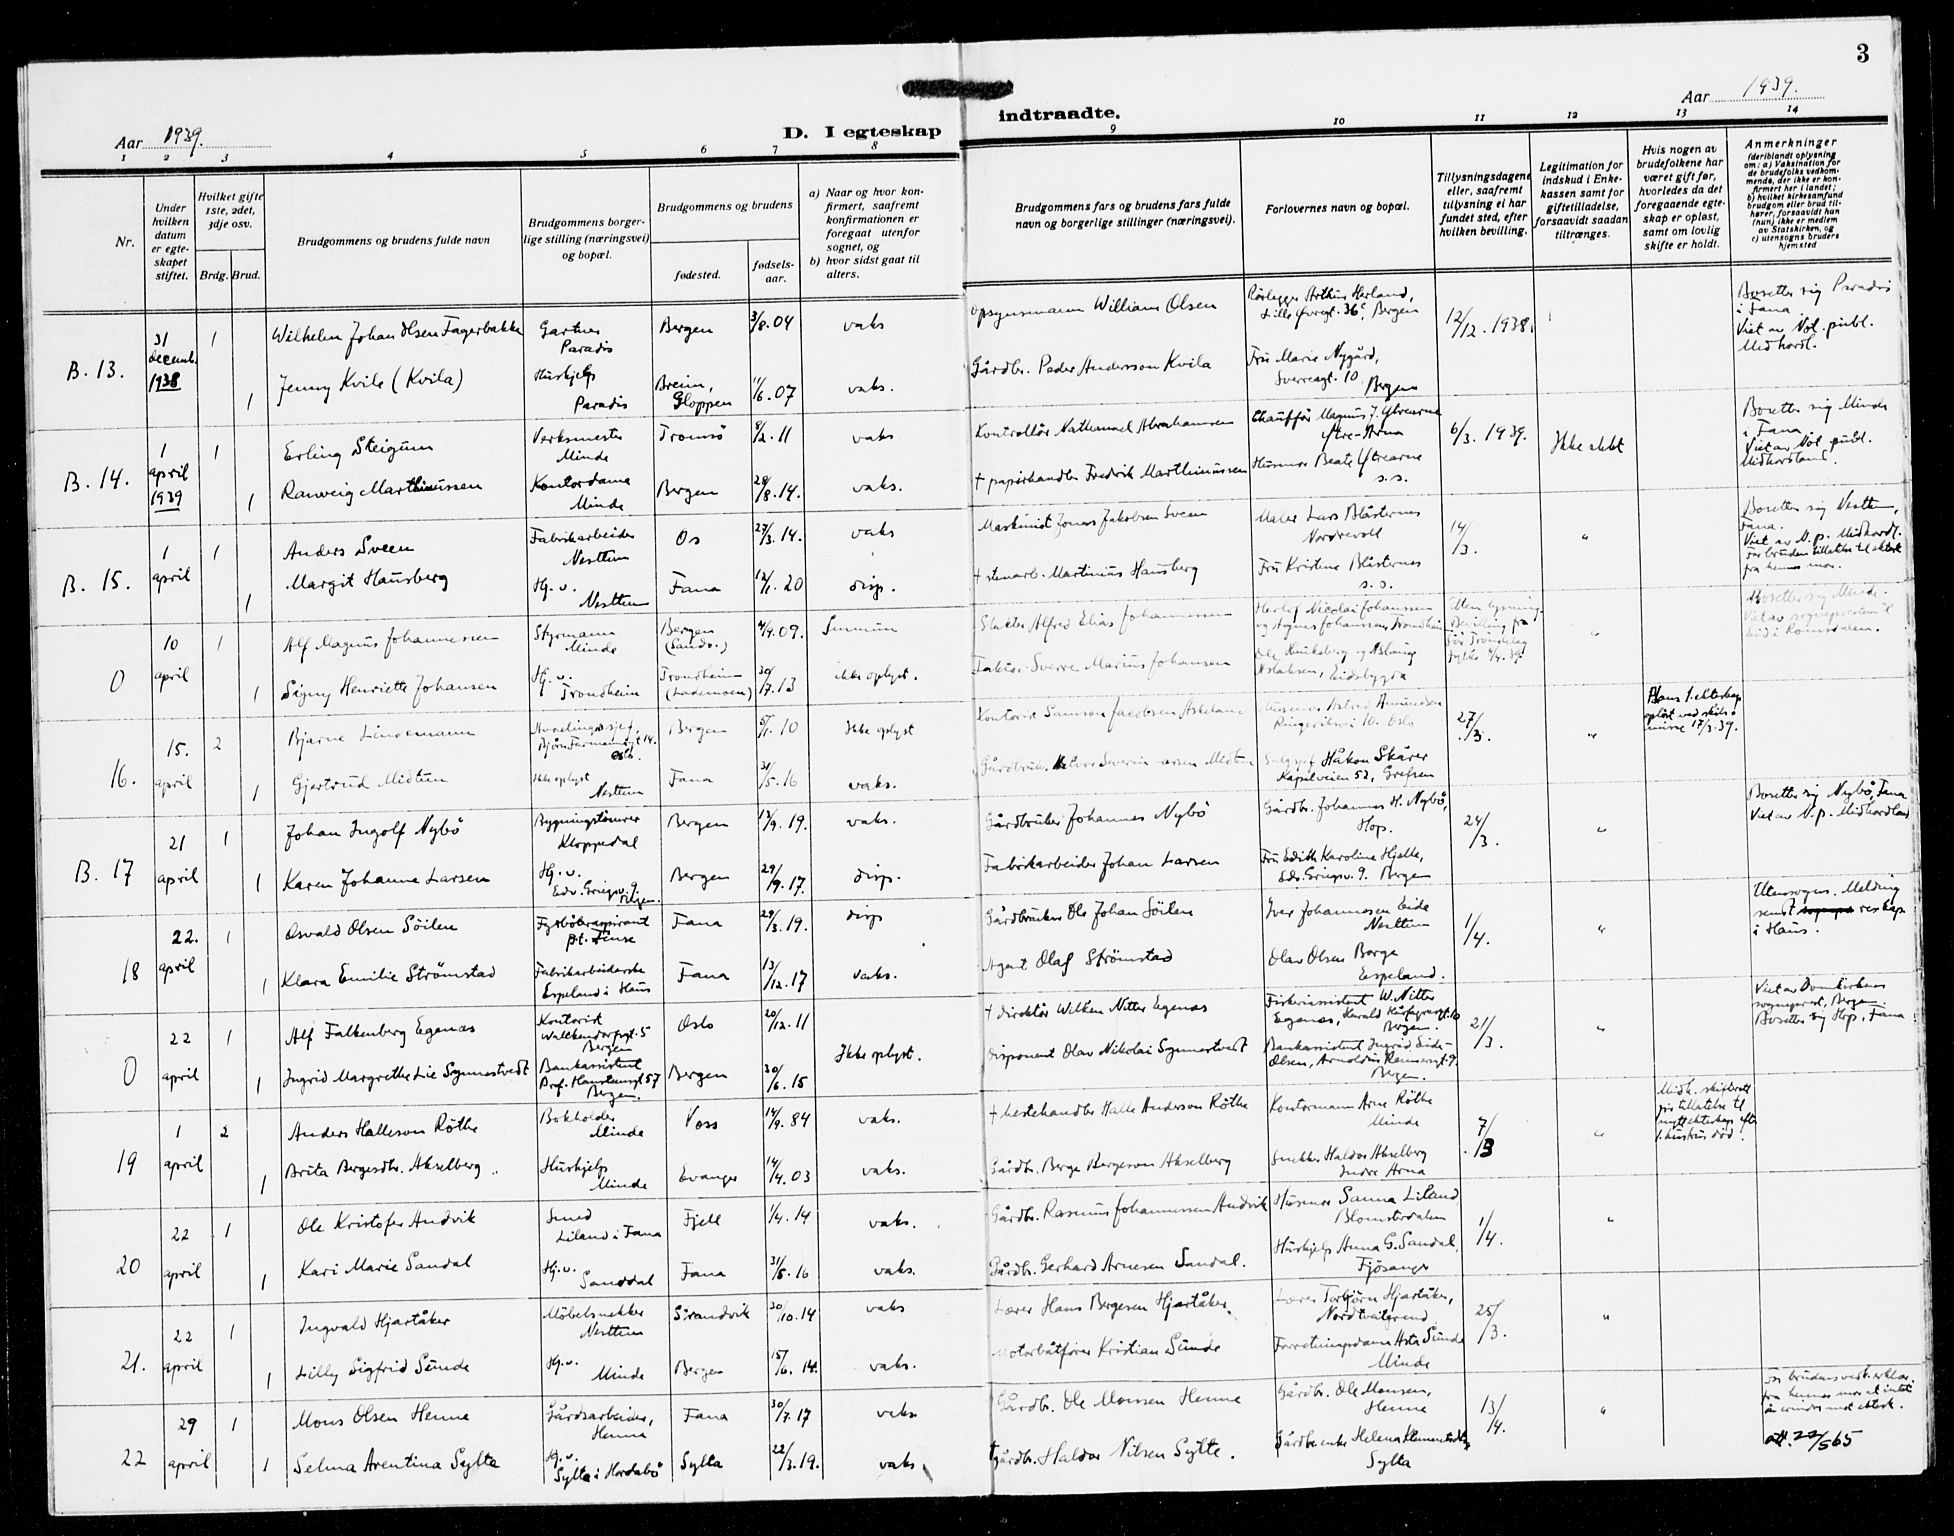 3
Aar 1939.
D. I egteskap indtraadte.
Aar 1939.
1 2 3 4 5 6 7 8 9 10 11 12 13 14
Nr.
Under hvilken datum er egte- skapet stiftet.
Hvilket gifte 1ste, 2det, 3dje osv.
Brdg. Brud.
Brudgommens og brudens fulde navn
Brudgommens borger- lige stilling (næringsvei) og bopæl.
Brudgommens og brudens
fødested.
fødsels- aar.
a) Naar og hvor kon- firmert, saafremt konfirmationen er foregaat utenfor sognet, og
b) hvor sidst gaat til alters.
Brudgommens fars og brudens fars fulde navn og borgerlige stillinger (næringsvei).
Forlovernes navn og bopæl.
Tillysningsdagene eller, saafremt tillysning ei har fundet sted, efter hvilken bevilling.
Legitimation for indskud i Enke- kassen samt for giftetilladelse, forsaavidt saadan tiltrænges.
Hvis nogen av brudefolkene har været gift før, hvorledes da det foregaaende egte- skap er opløst, samt om lovlig skifte er holdt.
Anmerkninger (deriblandt oplysning om: a) Vaksination for de brudefolks vedkom- mende, der ikke er kon- firmert her i landet; b) hvilket kirkesamfund brudgom eller brud til- hører, forsaavidt han (hun) ikke er medlem av Statskirken, og c) utensogns bruders hjemsted
B. 13. 31 decemb. 1938 1 Wilhelm Johan Olsen Fagerbakke Gartner Paradis Bergen 3/8.04 vaks Opsynsmann William Olsen Rørlegger Arthur Herland, Lille Øvregt. 36c Bergen 12/12. 1938. Bosetter sig Paradis i Fana Viet av Not. publ. Midhordl.
1 Jenny Kvile (Kvila) Hushjelp Paradis Breim, Gloppen 11/6.07 vaks. Gårdbr. Peder Andersson Kvila Fru Marie Nygård, Sverresgt. 10 Bergen
B. 14. 1 april 1939 1 Erling Steigum Verksmester Minde Tromsø 8/2.11 vaks Kontrollør Nathanael Abrahamsen Chauffør Magnus J. Ytrearne Ytre-Arna 6/3. 1939. Ikke slekt Bosetter sig Minde i Fana Viet av Not. publ. Midhordland.
1 Ranveig Marthinussen Kontordame Minde Bergen 28/8.14. vaks. + papirhandler Fredrik Marthinussen Husmor Beate Ytrearne s.s.
B. 15. 1 april 1 Anders Sveen Fabrikarbeider Nesttun Os 27/3.14. vaks Maskinist Jonas Jakobsen Sveen Maler Lars Blåsternes Nordrevoll 14/3. " Bosetter sig Nesttun, Fana. Viet av N.p. Midhordl. For bruden tillatelse til ektesk. fra hennes mor.
1 Margit Hausberg Hj. v. Nesttun Fana 12/1.20 disp. + stenarb. Martinius Hausberg Fru Kristine Blåsternes s.s.
0 10 april 1 Alf Magnus Johannessen Styrmann Minde Bergen (Sandv.) 4/9.09. Slakter Alfred Elias Johannessen Herlof Nicolai Johanssen og Agnes Johanssen, Trondheim Uten lysning. Bevilling fra Sør Trøndelag fylke 4/4.39. " Bosetter sig Minde. Viet av sognepresten til Eid i Romsdalen.
1 Signy Henriette Johansen Hj. v. Trondheim Trondheim (Lademoen) 30/7.13 ikke oplyst. Faktor Sverre Marius Johansen Eidsbygda
16. 15. april 2 Bjarne Lindemann Avdelingssjef, Bjørn Farmannsgt 14. Oslo. Bergen 5/1.10 Ikke oplyst Kontorist Samson Jacobsen Askeland Husmor Astrid Amundsen Ringeriksvei 10. Oslo 27/3. " Hans 1. ekteskap opløst ved skils- misse 17/3.39.
1 Gjertrud Midtun Ikke oplyst Nesttun Fana 31/5.16 vaks. Salgssjef Håkon Skårer Kapellveien 52, Grefsen
B. 17 21 april 1 Johan Ingolf Nybø Bygningstømrer Kloppedal Bergen 13/9.19. vaks. Gårdbruker Johannes Nybø Gårdbr. Johannes H. Nybø, Hop. 24/3. " Bosetter sig Nybø, Fana Viet av N.p. Midhordland
1 Karen Johanne Larsen Hj. v. Edv. Griegsv. 9. Bergen. Bergen 29/9.17. disp. Fabrikarbeider Johan Larsen Fru Edith Karoline Hjelle, Edv. Griegsv. 9. Bergen
18 22. april 1 Osvald Olsen Søilen Fyrbøteraspirant p.t. Finse Fana 29/3.19. disp Gårdbruker Ole Johan Søilen Iver Johannesen Eide Nesttun 1/4. " Utensogns. Melding sendt i Haus.
1 Klara Emilie Strømstad Fabrikarbeiderske Espeland i Haus Fana 13/12.17 vaks. Agent Olaf Strømstad Olav Olsen Borge Espeland.
0 22 april 1 Alf Falkenberg Egenæs Kontorist Walkendorfsgt. 5 Bergen Oslo 20/12.11 Ikke oplyst. + direktør Wilken Nitter Egenæs Fiskeriassistent W. Nitter Egenæs, Harald Hårfagresgt. 10 Bergen. 21/3. " Viet av Domkirkens sogneprest, Bergen. Bosetter sig Hop, Fana
1 Ingrid Margrethe Lie Synnestvedt Bankassistent Prof. Hansteensgt 57 Bergen. Bergen 30/6.15 Disponent Olav Nikolai Synnestvedt Bankassistent Ingrid Eide-Olsen, Arnoldus Reimersgt. 9. Bergen.
19 1 april 2 Anders Halleson Røthe Bokholder Minde Voss 14/9.84 vaks. + hestehandler Halle Anderson Røthe Kontormann Arne Røthe Minde 7/3 " Midh. skifterett gir tillatelse til nytt ekteskap efter 1. hustrus død.
1 Brita Bergesdtr. Akselberg Hushjelp Minde Evanger 14/4.03 vaks. Gårdbr. Berge Bergeson Akselberg Snekker Haldor Akselberg Indre Arna
20 22 april 1 Ole Kristofer Andvik Smed Liland i Fana Fjell 1/4.14 vaks. Gårdbr. Rasmus Johannessen Andvik Husmor Sanna Liland Blomsterdalen 1/4. "
1 Kari Marie Sandal Hj. v. Sanddal Fana 31/5.16 vaks. Gårdbr. Gerhard Arnesen Sandal. Hushjelp Anna G. Sandal, Fjøsanger
21. 22 april 1 Ingvald Hjartåker Møbelsnekker Nesttun Strandvik 30/10.14 vaks Lærer Hans Bergesen Hjartåker. Lærer Torbjørn Hjartåker, Nordtveitgrend 25/3. "
1 Lilly Sigfrid Sunde Hj. v. Minde Bergen 15/6.14. vaks. Motorbåtfører Kristian Sunde Forretningsdame Asta Sunde Minde
22 29 april 1 Mons Olsen Henne Gårdsarbeider, Henne Fana 30/7.17 vaks. Gårdbr. Ole Monsen Henne Gårdbr. Ole Monsen, Henne 13/4. " For brudens verk. erklær. fra hennes mor at intet å invende mot ektesk. att. 22/5 65
1 Selma Arentina Sylta Hj. v. Sylta i Hordabø Sylta 22/3.19. vaks + gårdbr. Haldor Nilsen Sylte. Gårdbr. enke Helena Klementsdtr. Sylta